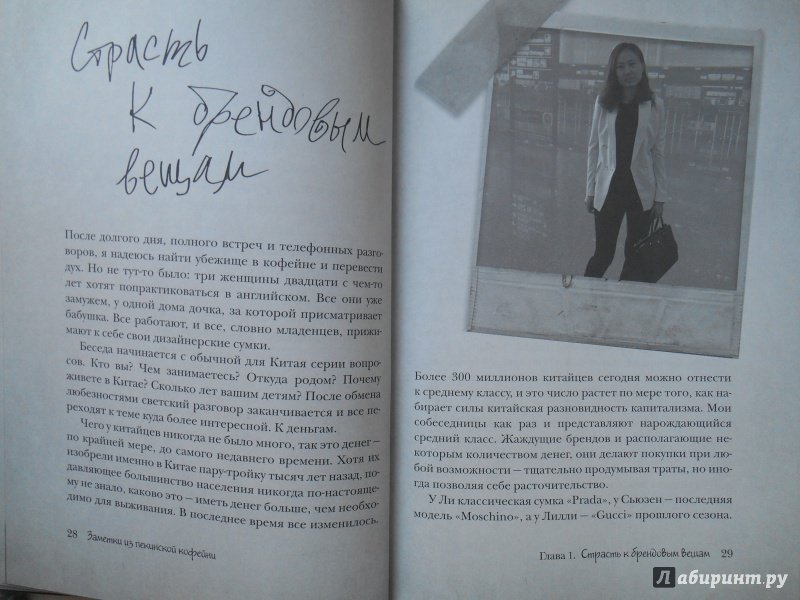 Страсть
к брендовым
вещам
После долгого дня, полного встреч и телефонных разго-
воров, я надеюсь найти убежище в кофейне и перевести
дух. Но не тут-то было: три женщины двадцати с чем-то
лет хотят попрактиковаться в английском. Все они уже
замужем, у одной дома дочка, за которой присматривает
бабушка. Все работают, и все, словно младенцев, прижи-
мают к себе свои дизайнерские сумки.
Беседа начинается с обычной для Китая серии вопро-
сов. Кто вы? Чем занимаетесь? Откуда родом? Почему
живете в Китае? Сколько лет вашим детям? После обмена
любезностями светский разговор заканчивается и все пе-
реходят к теме куда более интересной. К деньгам.
Чего у китайцев никогда не было много, так это денег –
по крайней мере, до самого недавнего времени. Хотя их
изобрели именно в Китае пару-тройку тысяч лет назад, по-
давляющее большинство населения никогда по-настояще-
му не знало, каково это – иметь денег больше, чем необхо-
димо для выживания. В последнее время все изменилось.
28 Заметки из пекинской кофейни
Более 300 миллионов китайцев сегодня можно отнести
к среднему классу, и это число растет по мере того, как на-
бирает силы китайская разновидность капитализма. Мои
собеседницы как раз и представляют нарождающийся
средний класс. Жаждущие брендов и располагающие не-
которым количеством денег, они делают покупки при лю-
бой возможности – тщательно продумывая траты, но ино-
гда позволяя себе расточительство.
У Ли классическая сумка «Prada», у Сьюзен – последняя
модель «Moschino», а у Лилли – «Gucci» прошлого сезона.
Глава 1. Страсть к брендовым вещам 29
Лабиринт.ру